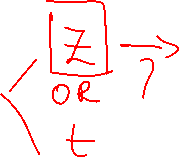 Z ?
OR
t